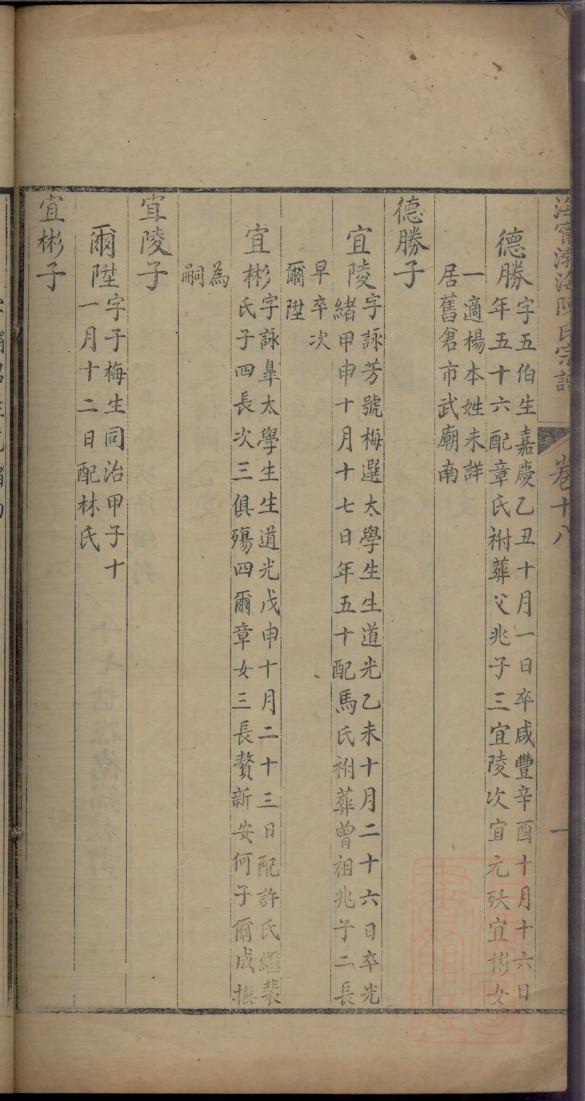 海寧渤海陳氏宗譜 卷十八 一
德勝
字五伯生嘉慶乙丑十月一日卒咸豐辛酉十月十六日
年五十六配章氏祔葬父兆子三宜陵次宜元殀宜彬女
一適楊本姓未詳
居舊倉市武廟南
德勝子
宜陵
字詠芳號梅選太學生生道光乙未十月二十六日卒光
緒甲申十月十七日年五十配馬氏祔葬曾祖兆子二長
早卒次
爾陞
宜彬
字詠臯太學生生道光戊申十月二十三日配許氏繼裴
氏子四長次三俱殤四爾章女三長贅新安何子爾成撫
為
嗣
宜陵子
爾陞
字子梅生同治甲子十
一月十二日配林氏
宜彬子